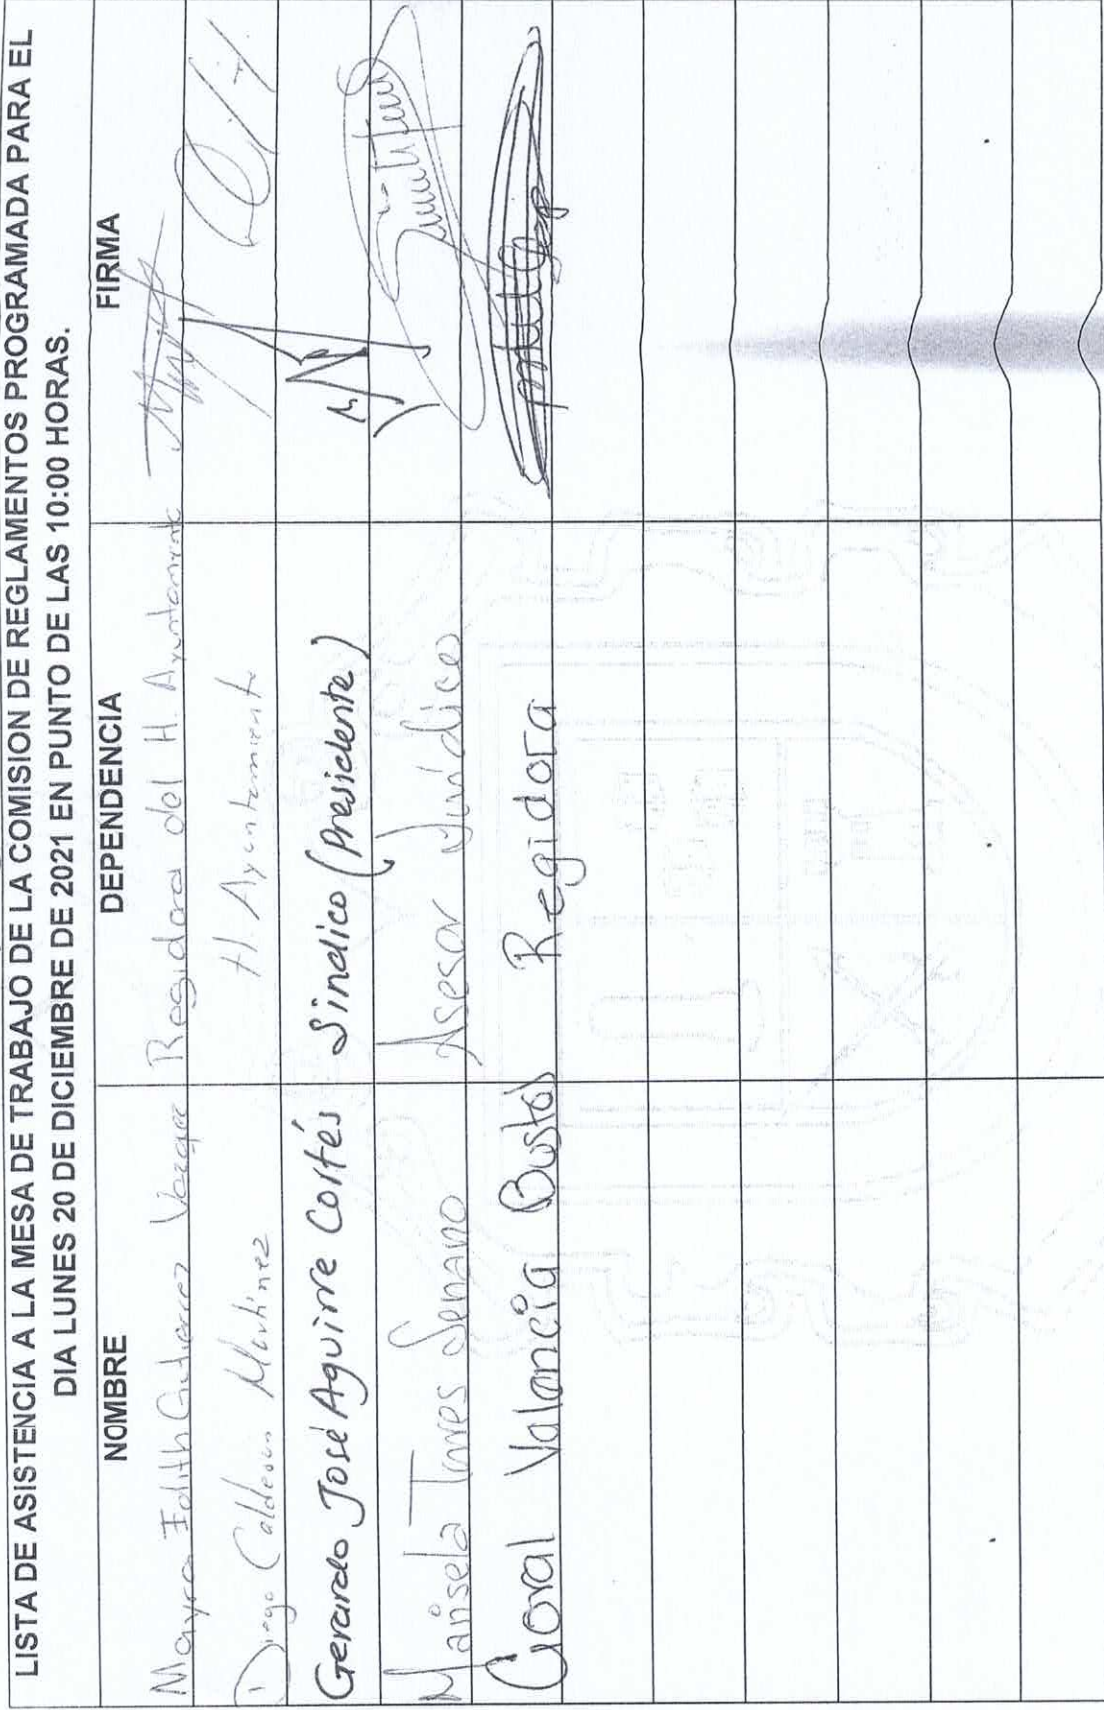 LISTA DE ASISTENCIA A LA MESA DE TRABAJO DE LA COMISION DE REGLAMENTOS PROGRAMADA PARA EL
DIA LUNES 20 DE DICIEMBRE DE 2021 EN PUNTO DE LAS 10:00 HORAS.
NOMBRE DEPENDENCIA FIRMA
Mayra Edith Gutierrez Vargas Regidora del H. Ayuntamiento
Diego Calderon Martinez H. Ayuntamiento
Gerardo José Aguirre Cortés Sindico (Presidente)
Marisela Torres Serrano Asesor Juridico
Coral Valencia Bustos Regidora